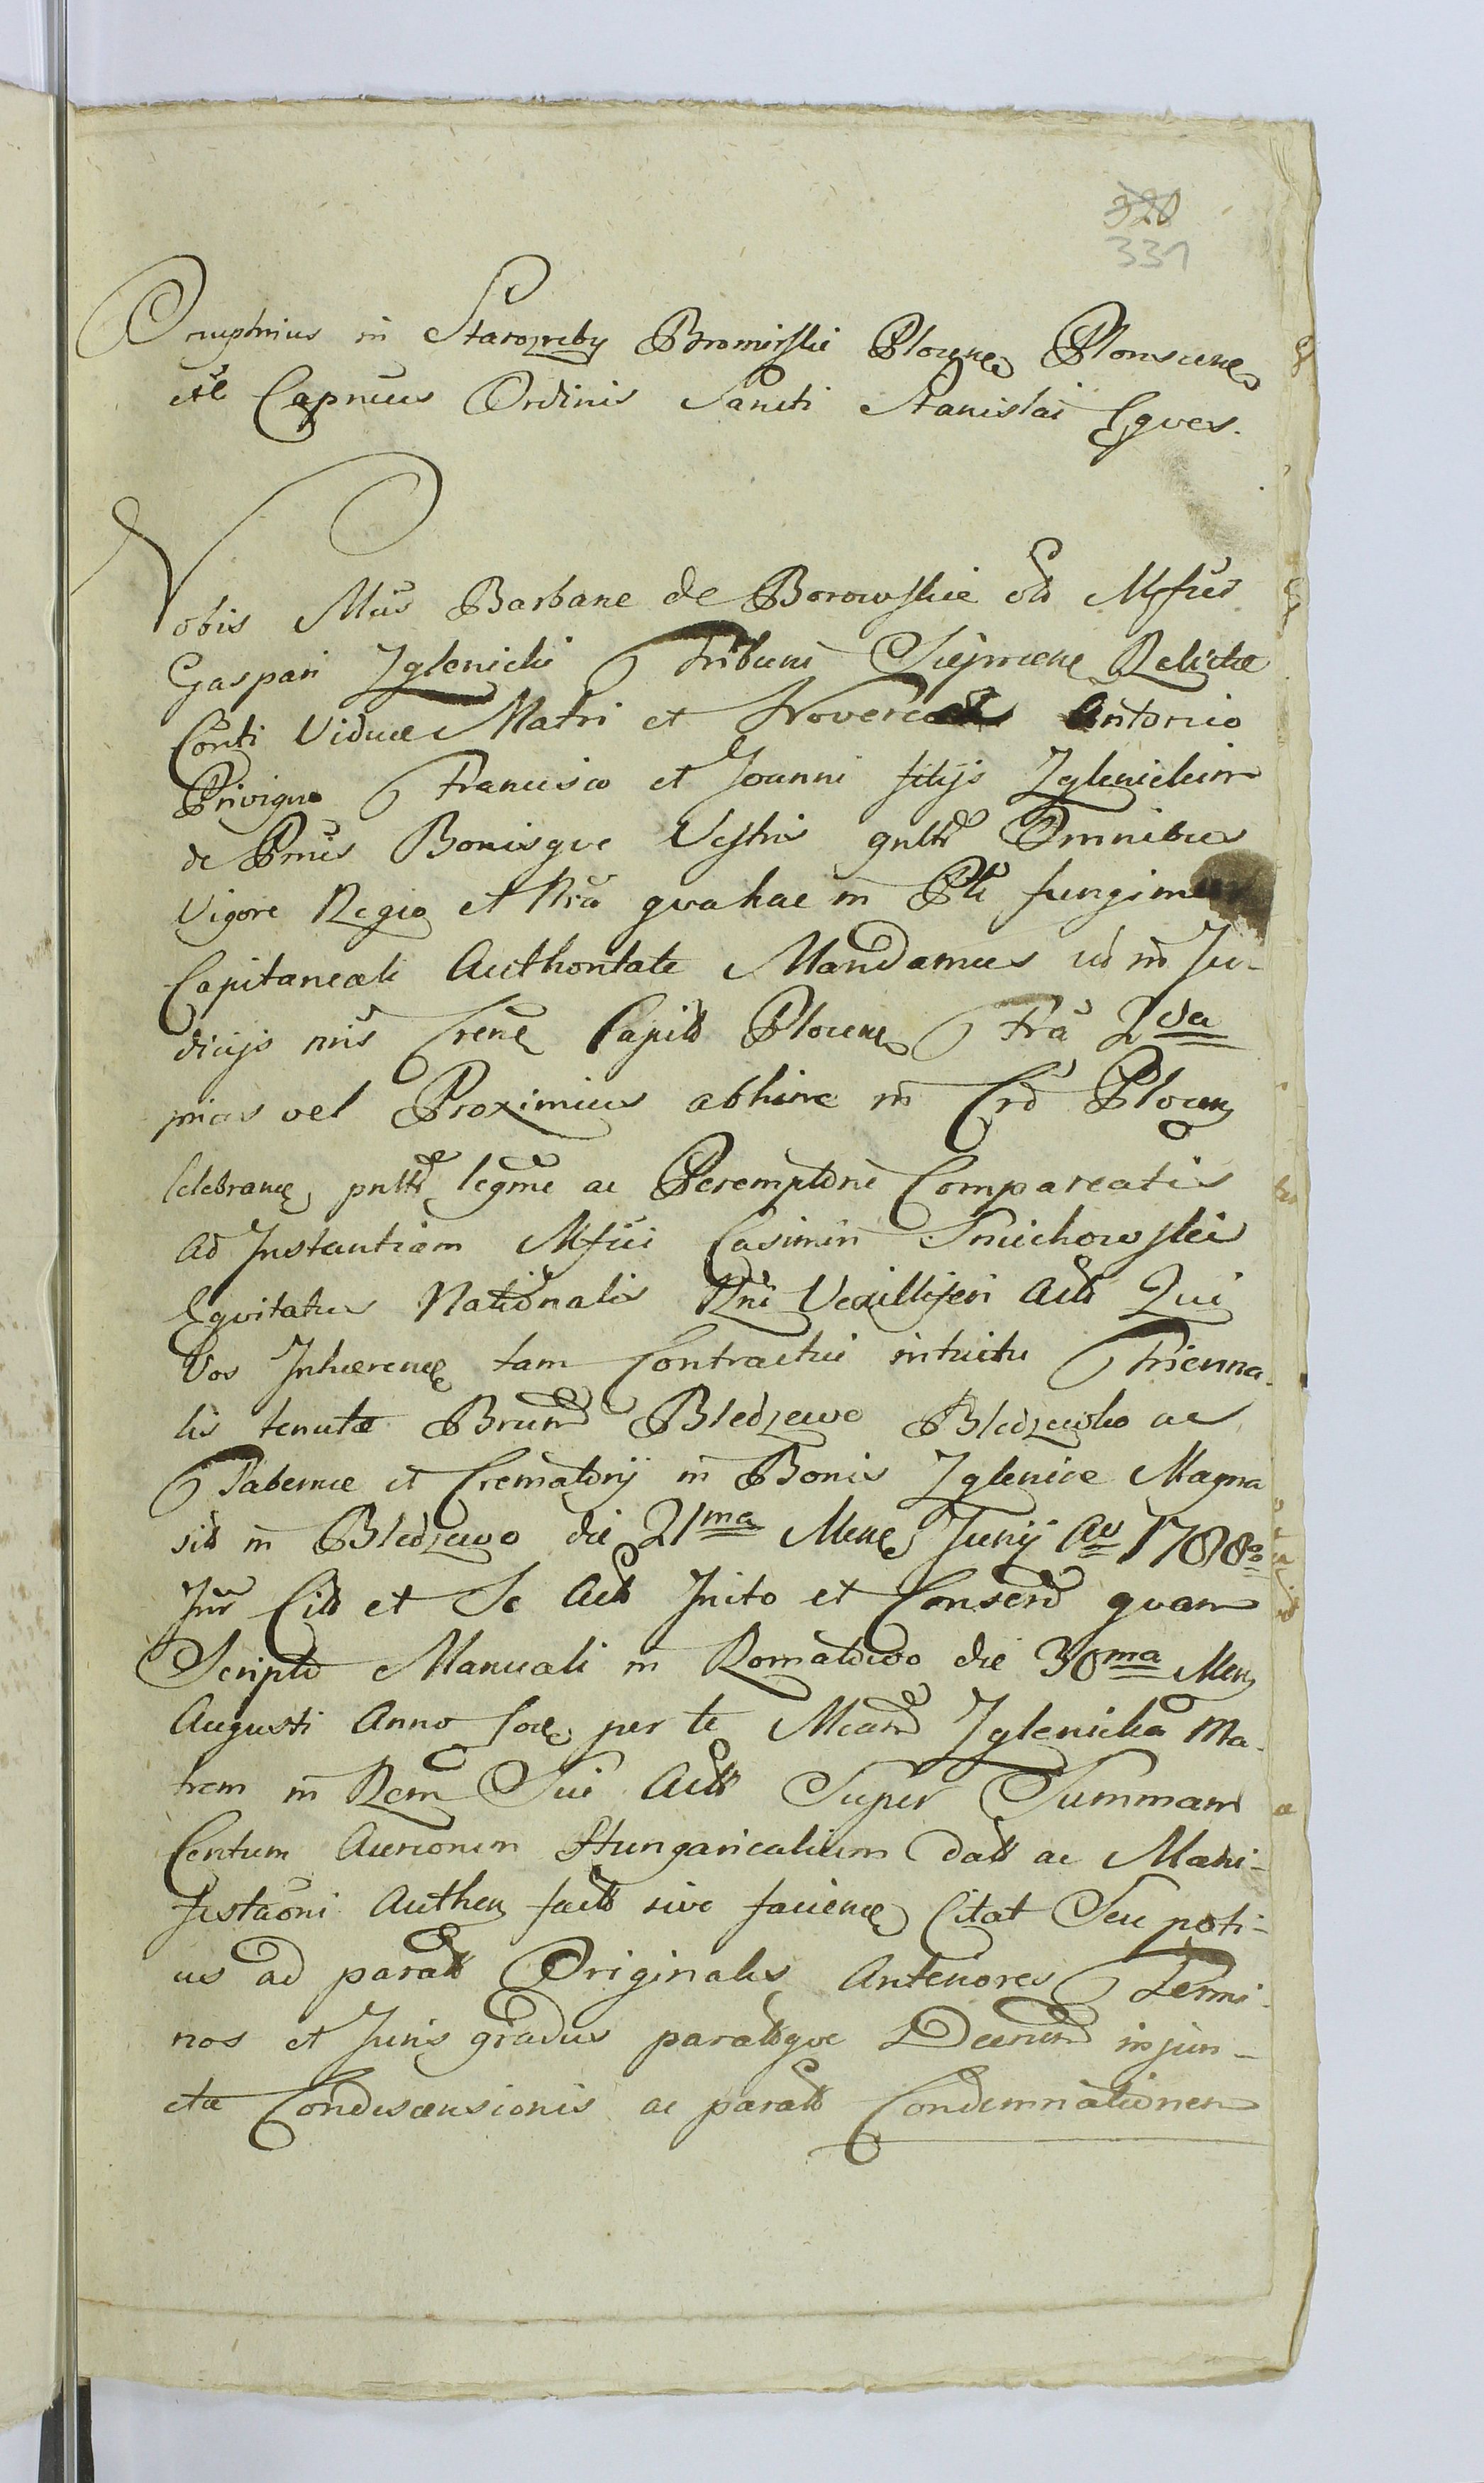 320
331
Onuphrius in Starozreby Bromirski Plocen Plonscen
etc Capneus Ordinis Sancti Stanislai Eques.
Vobis Mcis Barbare de Borowskie olim Mfici
Gaspari Zglenicki Tribuni Sieprcen Relictæ
Conti Viduæ Matri et Antonio
Privigno Francisco et Joanni filijs Zglenickim
de Bonisque Vestris gnltr Omnibus
Vigore Regia et Nra qua hac in Pte fungimur
Capitaneali Authoritate Mandamus ut in Ju-
dicijs nris Crens Capit Plocen Fra 2da
prius vel Proximius abhinc in Crd Plocen
Celebranꝫ pnltr legme ac Peremptorie Compareatis
Ad Instantiam Mfici Casimiri Smichowski
Equitatus Nationalis Rni Vexilliferi Act Qui
Vos Inhærenꝫ tam Contractui intuitu Trienna-
lis tenutæ Bledzewo Bledzewko ac
Tabernæ et Crematorij in Bonis Zglenice Magna
sit in Bledzewo die 21ma Mens Junij Ao 1788o
Intr Cit et Se Act Inito et Conserv quam
Scripto Manuali in Romatowo die 30ma Men
Augusti Anno eod per te Mcam Zglenicka Ma-
trem in Rem Sui Act Super Summam
Centum Aureorum Hungaricalium datt ac Mani-
festaoni Authen factt sive facienꝫ Citat Seu poti-
us ad paratt Originales Anteriores Termi-
nos et Juris gradus parattque Decretum injun-
ctæ Condescensionis ac paratt Condemnationem